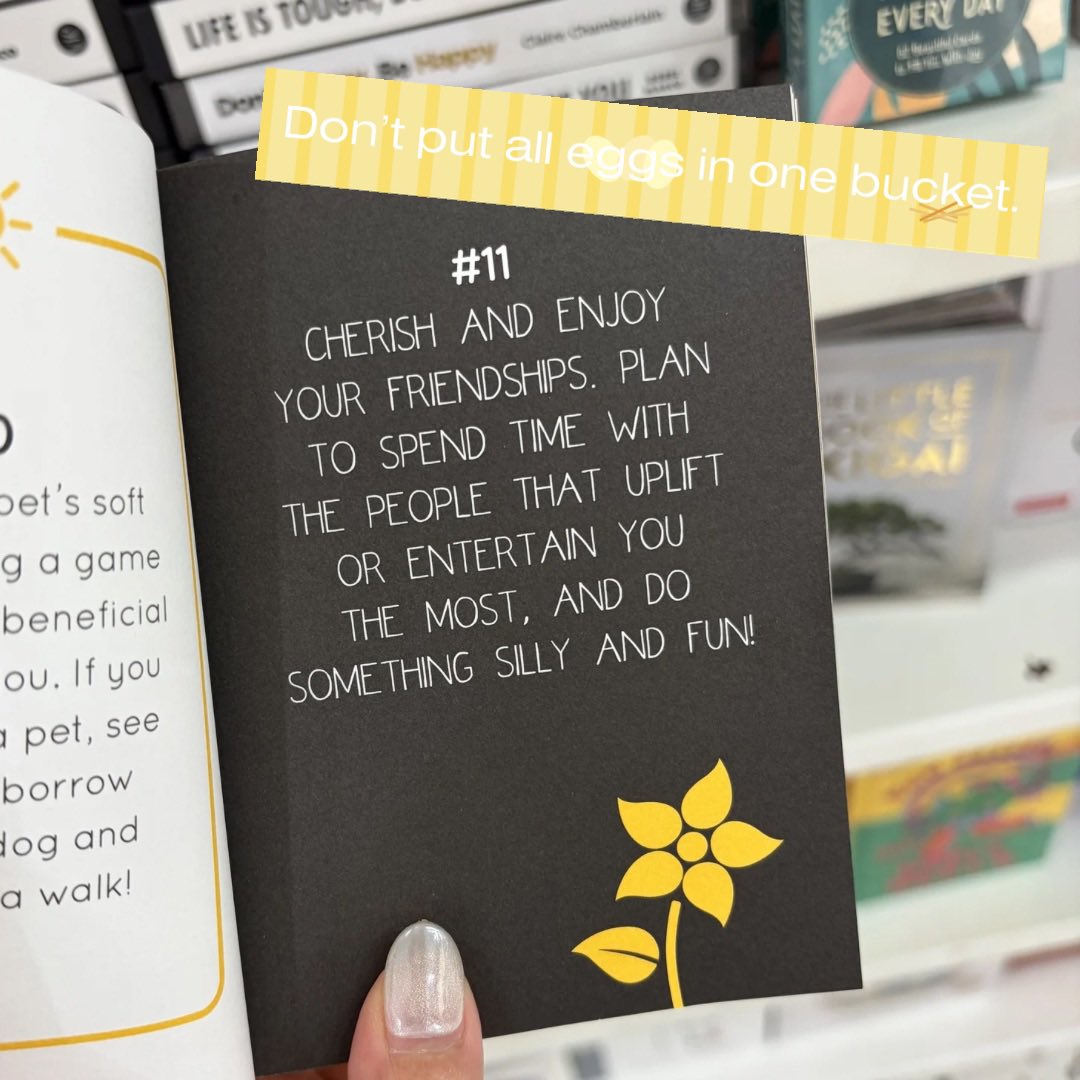 LIFE IS TOUGH,
The Happy
Claire Chamberlain
EVERY DAY
Don't put all eggs in one bucket.
#11
CHERISH AND ENJOY
YOUR FRIENDSHIPS. PLAN
TO SPEND TIME WITH
THE PEOPLE THAT UPLIFT
OR ENTERTAIN YOU
THE MOST, AND DO
SOMETHING SILLY AND FUN!
pet's soft
g a game
beneficial
ou. If you
a pet, see
borrow
dog and
a walk!
LITTLE
BOOK OF
IKIGAI